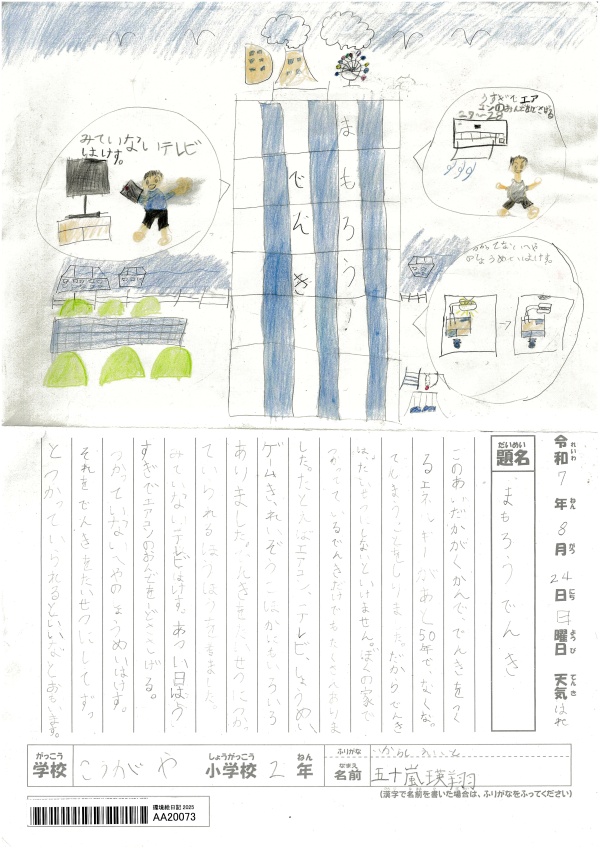 まもろう!
でんき
みていないテレビ
はけす。
うすぎでエア
コンのおんどをさげる
27〜28
つかってないへや
のしょうめいはけす。
令和7年8月24日日曜日 天気 はれ
れいわ ねん がつ にち ようび てんき
だいめい
題名
まもろうでんき
このあいだかがくかんで、でんきをつく
るエネルギーがあと50年でなくな
てしまうことをしりました。だからでんき
はたいせつにしないといけません。ぼくの家で
つかっているでんきだけでもたくさんありま
した。たとえばエアコン、テレビ、しょうめい、
ゲームき、れいぞうこ、ほかにもいろいろ
ありました。でんきをたいせつにつかっ
ていられるほうほうを書きました。
みていないテレビはけす。あつい日はう
すぎでエアコンのおんどを一どさげる。
つかっていないへやのしょうめいはけす。
それをでんきをたいせつにしてずっ
とつかっていられるといいなとおもいます。
がっこう
学校
こうがや
しょうがっこう
小学校
2
ねん
年
ふりがな
なまえ
名前
五十嵐瑛翔
(漢字で名前を書いた場合は、ふりがなをふってください)
環境絵日記 2025
AA20073